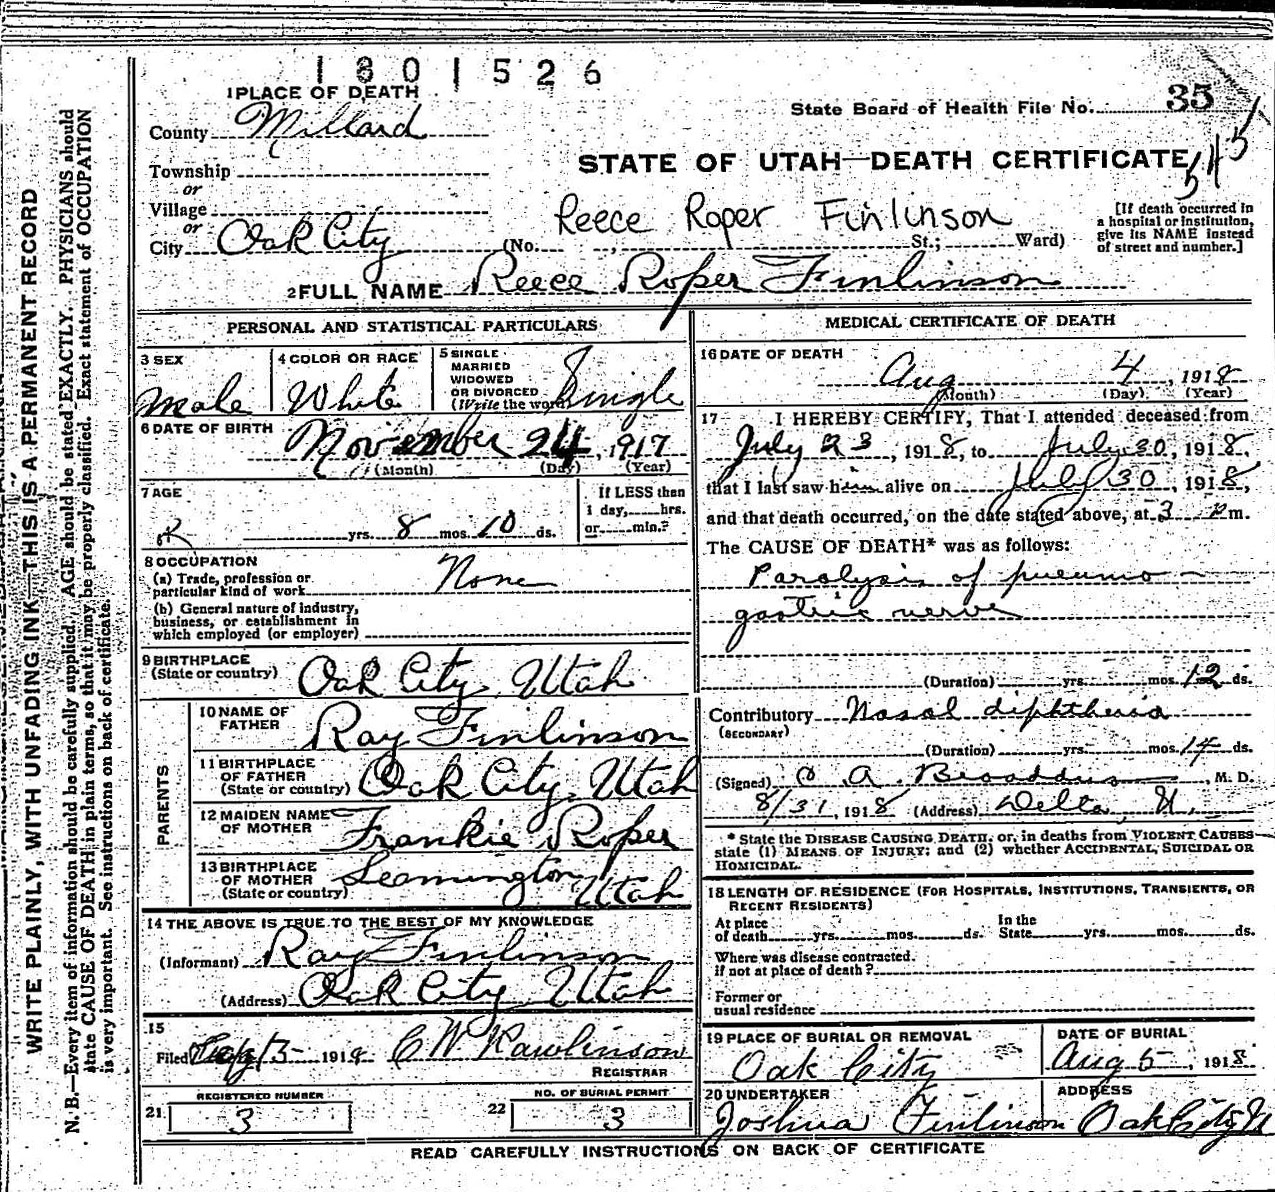 1801526
1 PLACE OF DEATH
State Board of Health File No. 35
County Millard
515
STATE OF UTAH—DEATH CERTIFICATE
Township
or
Village
or
City Oak City
Reece Roper Finlinson
(No. , St.; Ward)
[If death occurred in
a hospital or institution,
give its NAME instead
of street and number.]
2 FULL NAME Reece Roper Finlinson
PERSONAL AND STATISTICAL PARTICULARS
3 SEX
Male
4 COLOR OR RACE
White
5 SINGLE
MARRIED
WIDOWED
OR DIVORCED
(Write the word) Single
6 DATE OF BIRTH
November 24, 1917
(Month) (Day) (Year)
7 AGE
yrs. 8 mos. 10 ds.
If LESS than
1 day, hrs.
or min.?
8 OCCUPATION
(a) Trade, profession or
particular kind of work None
(b) General nature of industry,
business, or establishment in
which employed (or employer)
9 BIRTHPLACE
(State or country) Oak City Utah
PARENTS
10 NAME OF
FATHER Ray Finlinson
11 BIRTHPLACE
OF FATHER
(State or country) Oak City, Utah
12 MAIDEN NAME
OF MOTHER Frankie Roper
13 BIRTHPLACE
OF MOTHER
(State or country) Leamington
Utah
14 THE ABOVE IS TRUE TO THE BEST OF MY KNOWLEDGE
(Informant) Ray Finlinson
(Address) Oak City Utah
15
Filed 1918 C W Rawlinson
REGISTRAR
21 REGISTERED NUMBER
3
22 NO. OF BURIAL PERMIT
3
MEDICAL CERTIFICATE OF DEATH
16 DATE OF DEATH
Aug 4, 1918
(Month) (Day) (Year)
17 I HEREBY CERTIFY, That I attended deceased from
July 23, 1918, to July 30, 1918,
that I last saw him alive on July 30, 1918,
and that death occurred, on the date stated above, at 3 p m.
The CAUSE OF DEATH* was as follows:
Paralysis of pneumo-
gastric nerve
(Duration) yrs. mos. 12 ds.
Contributory Nasal diphtheria
(SECONDARY)
(Duration) yrs. mos. 14 ds.
(Signed) A. Broaddus, M. D.
8/31, 1918 (Address) Delta, U.
* State the DISEASE CAUSING DEATH, or, in deaths from VIOLENT CAUSES
state (1) MEANS OF INJURY; and (2) whether ACCIDENTAL, SUICIDAL OR
HOMICIDAL.
18 LENGTH OF RESIDENCE (FOR HOSPITALS, INSTITUTIONS, TRANSIENTS, OR
RECENT RESIDENTS)
At place
of death yrs. mos. ds.
In the
State yrs. mos. ds.
Where was disease contracted.
if not at place of death?
Former or
usual residence
19 PLACE OF BURIAL OR REMOVAL
Oak City
DATE OF BURIAL
Aug 5, 1918
20 UNDERTAKER
Joshua Finlinson
ADDRESS
Oak City U
READ CAREFULLY INSTRUCTIONS ON BACK OF CERTIFICATE
WRITE PLAINLY, WITH UNFADING INK—THIS IS A PERMANENT RECORD
N. B.—Every item of information should be carefully supplied. AGE should be stated EXACTLY. PHYSICIANS should
state CAUSE OF DEATH in plain terms, so that it may be properly classified. Exact statement of OCCUPATION
is very important. See instructions on back of certificate.